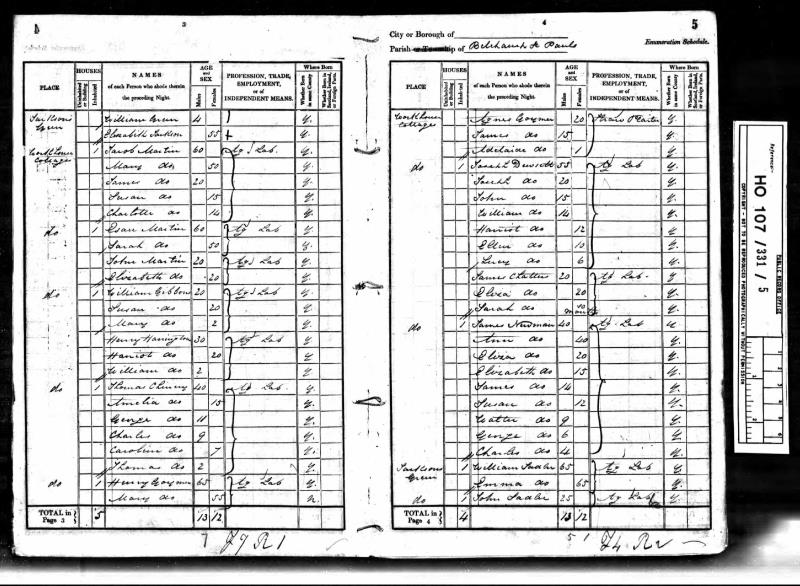 4
3
4
5
City or Borough of
Parish or Township of Belchamp St Pauls
Enumeration Schedule.
PLACE
HOUSES
Uninhabited or Building
Inhabited
NAMES
of each Person who abode therein the preceding Night.
AGE and SEX
Males
Females
PROFESSION, TRADE, EMPLOYMENT, or of INDEPENDENT MEANS.
Where Born
Whether Born in same County
Whether Born in Scotland, Ireland, or Foreign Parts.
William Green 4 y.
Green Elizabeth 55 y.
Workhouse Cottages 1 Jacob Martin 60 Ag Lab. y.
Mary do 50 y.
James do 20 y.
Susan do 15 y.
Charlotte do 14 y.
do 1 Martin 60 Ag Lab y.
Sarah do 50 y.
John Martin 20 Ag Lab y.
Elizabeth do 20 y.
do 1 William Gibbons 20 Ag Lab y.
Susan do 20 y.
Mary do 2 y.
Henry Harrington 30 Ag Lab y.
Harriot do 20 y.
William do 2 y.
do 1 Thomas 40 Ag Lab. y.
Amelia do 15 y.
George do 11 y.
Charles do 9 y.
Caroline do 7 y.
Thomas do 2 y.
do 1 Henry 65 Ag Lab y.
Mary do 55 n.
TOTAL in Page 3 5 13 12
PLACE
HOUSES
Uninhabited or Building
Inhabited
NAMES
of each Person who abode therein the preceding Night.
AGE and SEX
Males
Females
PROFESSION, TRADE, EMPLOYMENT, or of INDEPENDENT MEANS.
Where Born
Whether Born in same County
Whether Born in Scotland, Ireland, or Foreign Parts.
Workhouse Cottages Agnes 20 Straw Plaiter y.
James do 15 y.
Adelaide do 1 y.
do 1 55 Ag Lab y.
do 20 y.
John do 15 y.
William do 14 y.
Harriot do 12 y.
Ellen do 10 y.
Lucy do 6 y.
James 20 Ag Lab y
do 20 y.
Sarah do 10 months y.
do 1 James Newman 40 Ag Lab y
Ann do 40 y.
do 20 y.
Elizabeth do 15 y.
James do 14 y.
Susan do 12 y.
Walter do 9 y.
George do 6 y.
Charles do 4 y.
Green 1 William Sadler 65 Ag Lab y.
Emma do 65 y.
do 1 John Sadler 25 Ag Lab y.
TOTAL in Page 4 4 13 12
5 1
Reference:-
HO 107/331/5
PUBLIC RECORD OFFICE
COPYRIGHT - NOT TO BE REPRODUCED PHOTOGRAPHICALLY WITHOUT PERMISSION